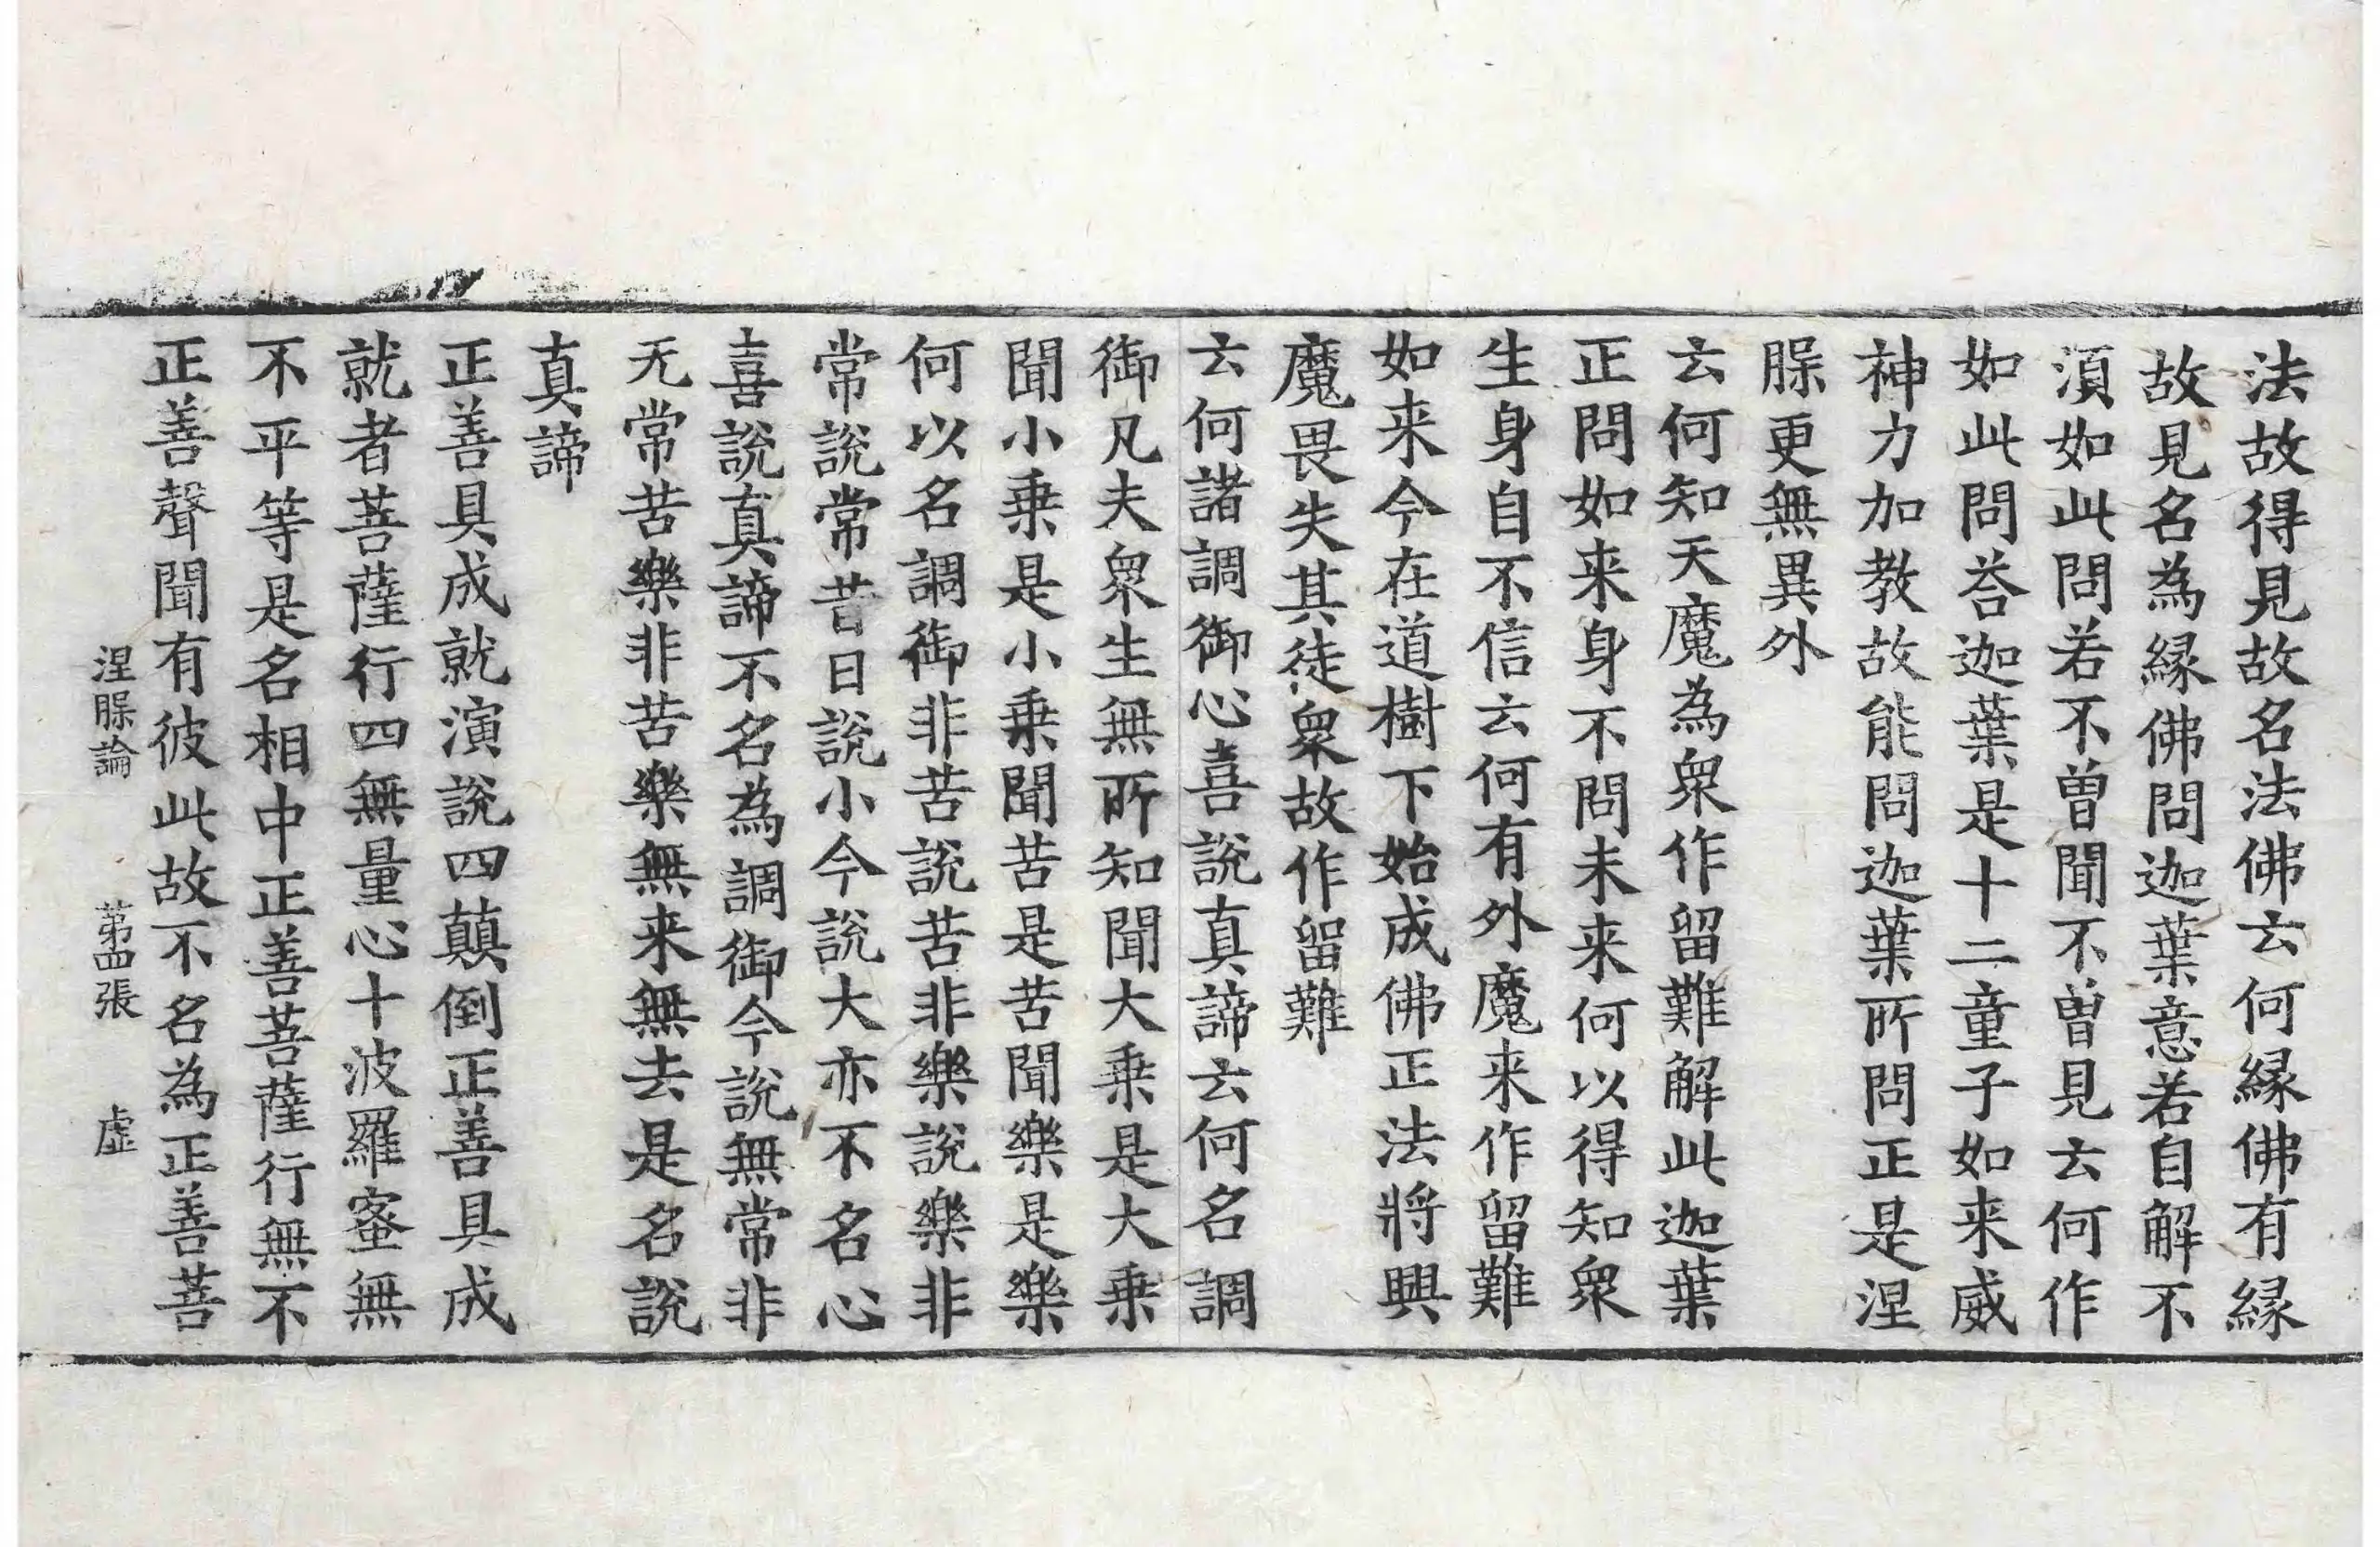 法故得見故名法佛云何縁佛有縁
故見名為縁佛問迦葉意若自解不
湏如此問若不曾聞不曾見云何作
如此問荅迦葉是十二童子如来威
神力加教故能問迦葉所問正是涅
𦖠更無異外
云何知天魔為衆作留難解此迦葉
正問如来身不問未来何以得知衆
生身自不信云何有外魔来作留難
如来今在道樹下始成佛正法將興
魔畏失其徒衆故作留難
云何諸調御心喜說真諦云何名調
御凡夫衆生無所知聞大乗是大乗
聞小乗是小乗聞苦是苦聞樂是樂
何以名調御非苦說苦非樂說樂非
常說常昔日說小今說大亦不名心
喜說真諦不名為調御今說無常非
无常苦樂非苦樂無来無去是名說
真諦
正善具成就演説四顛倒正善具成
就者菩薩行四無量心十波羅蜜無
不平等是名相中正善菩薩行無不
正善聲聞有彼此故不名為正善菩
涅𦖠論 苐四張 虛